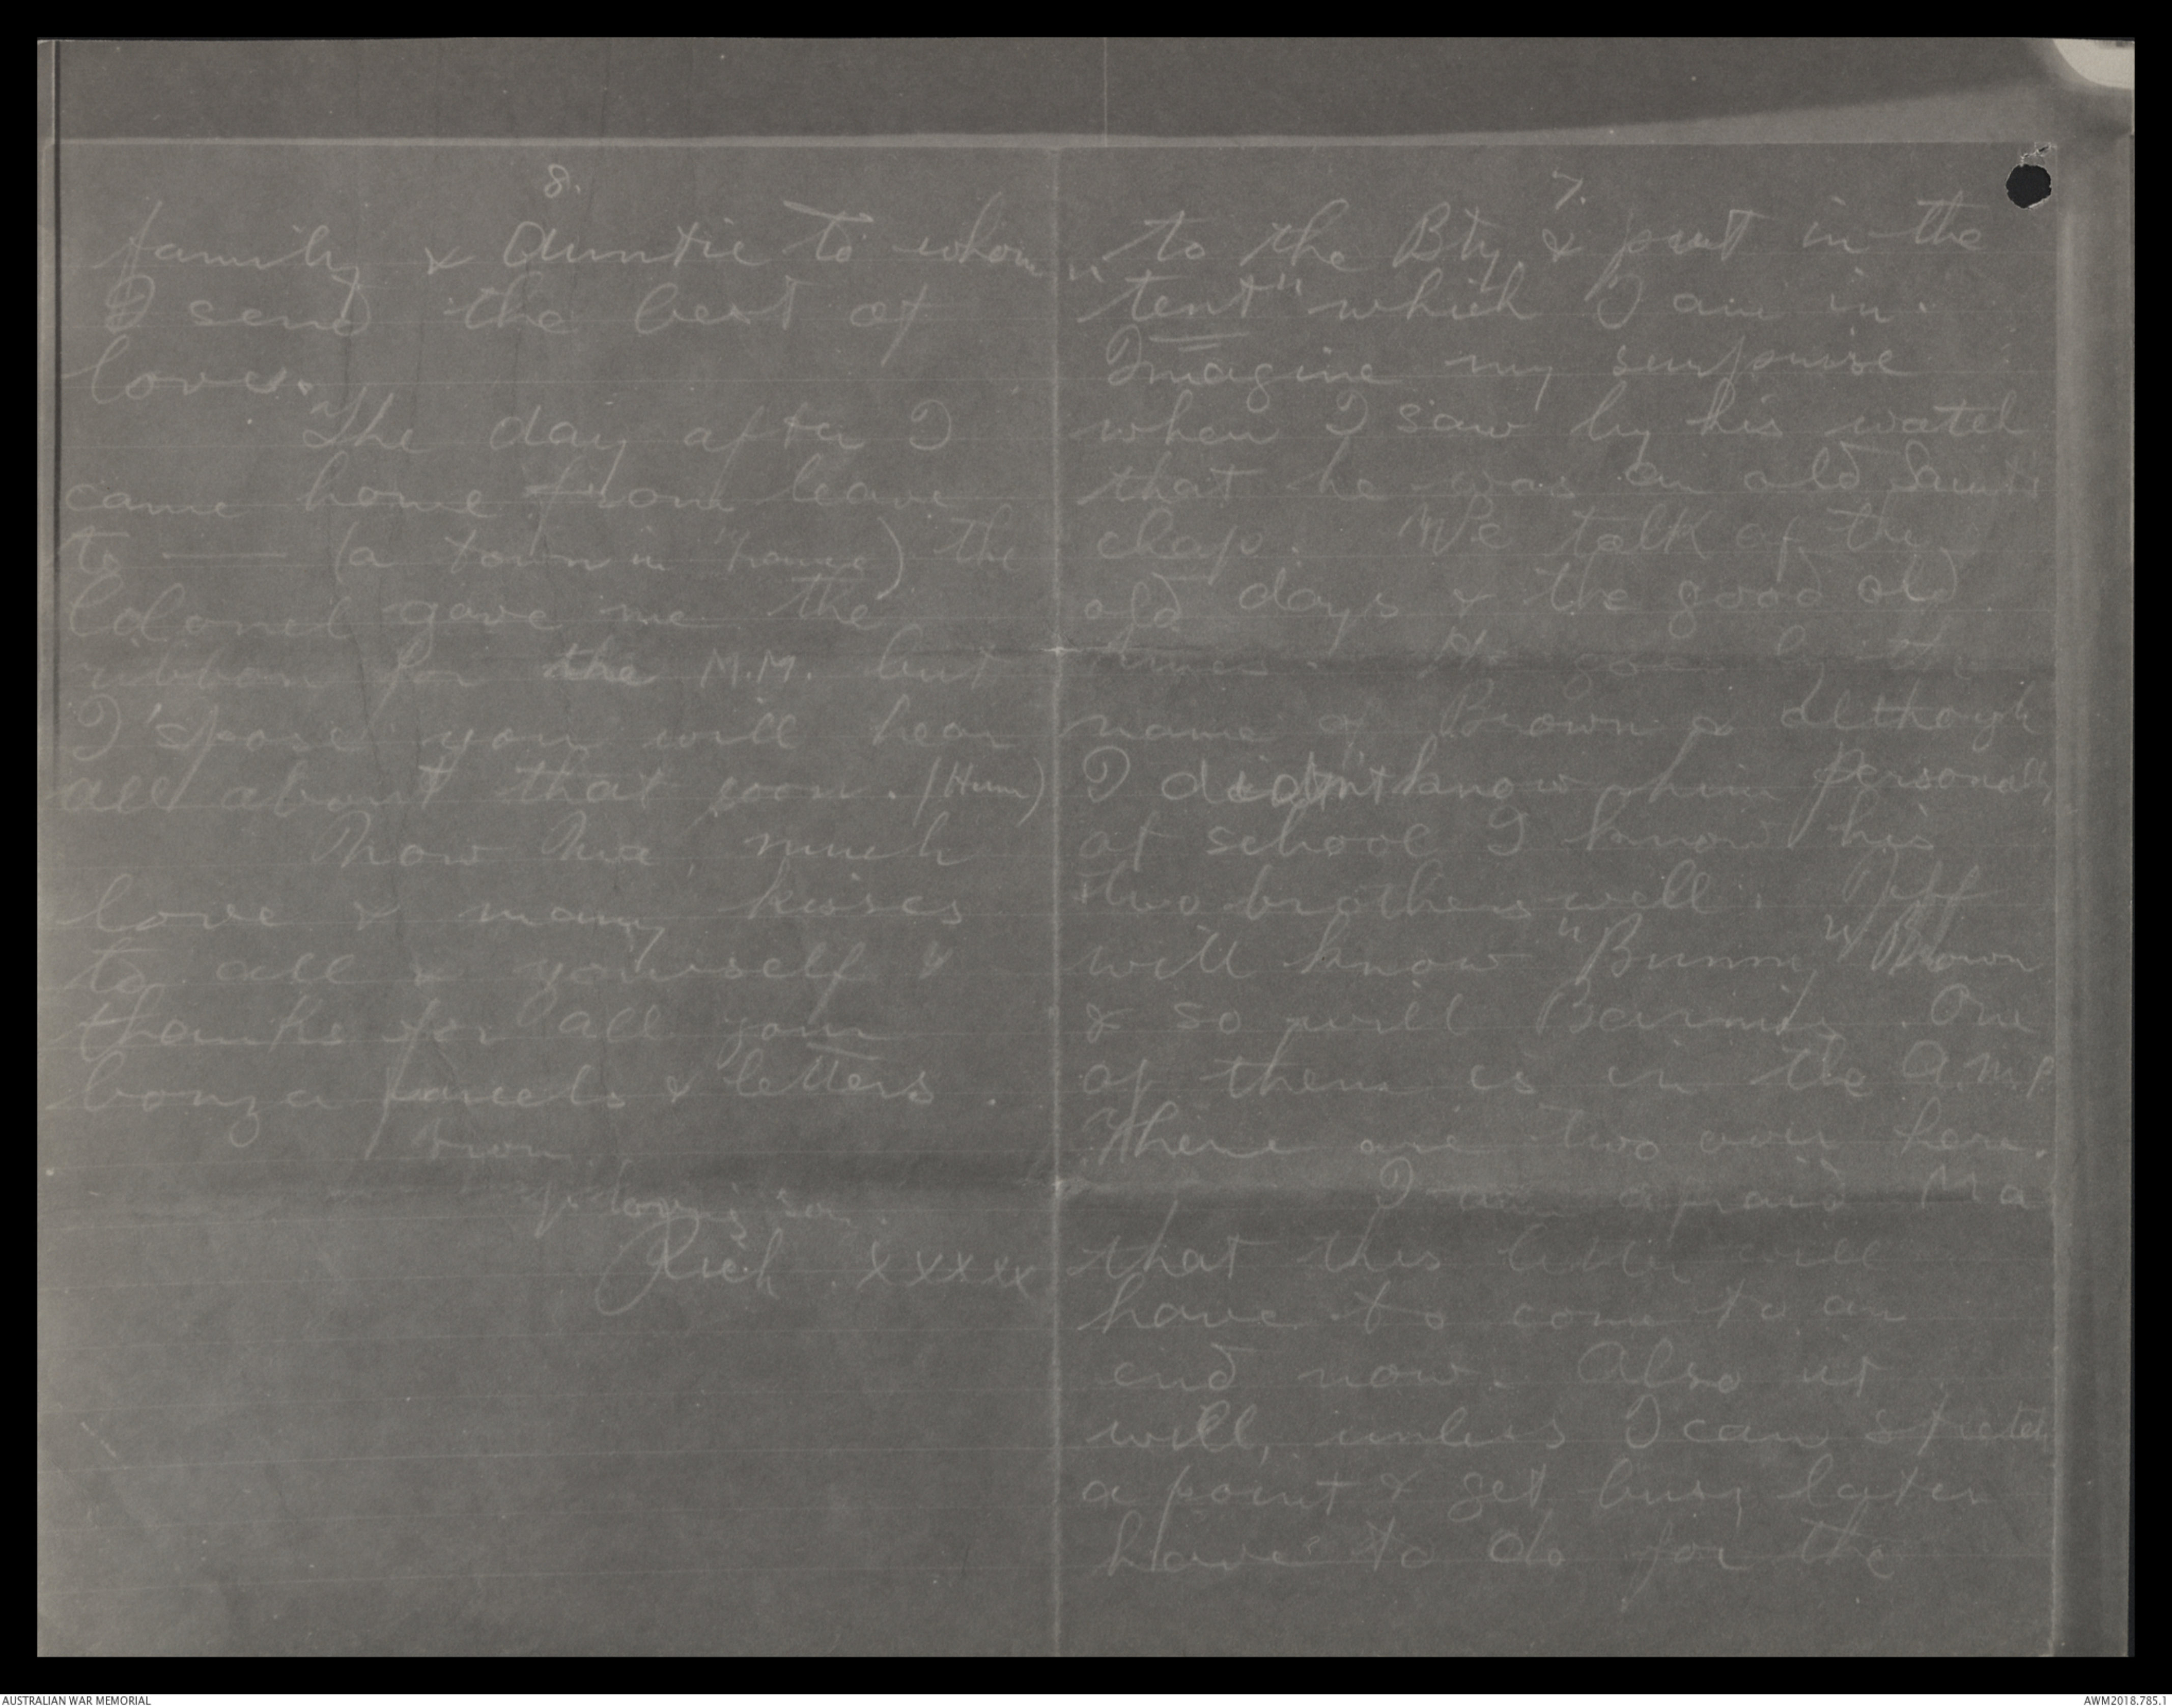 7.
to the Bty. & put in the
"tent" which I am in.
Imagine my surprise
when I saw by his watch
that he was an old Scots
chap. We talk of the
old days & the good old
times. He goes by the
name of Brown & although
I didn't know him personally
at school I know his
two brothers well.
will know "Bunny" Brown
& so will. One
of them is in the A.M.P.
There are two over here.
I am afraid Ma
that this letter will
have to come to an
end now. Also it
will, unless I can stretch
a point & get busy later
have to do for the
8.
family & Auntie to whom
I send the best of
love.
The day after I
came home from leave
to —— (a town in France) the
Colonel gave me the
ribbon for the M.M. but
I 'spose you will hear
all about that soon. (Hum)
Now, much
love & many kisses
to all & yourself &
thanks for all your
bonza parcels & letters.
from
yr loving son.
Rich. xxxxx
AUSTRALIAN WAR MEMORIAL
AWM2018.785.1